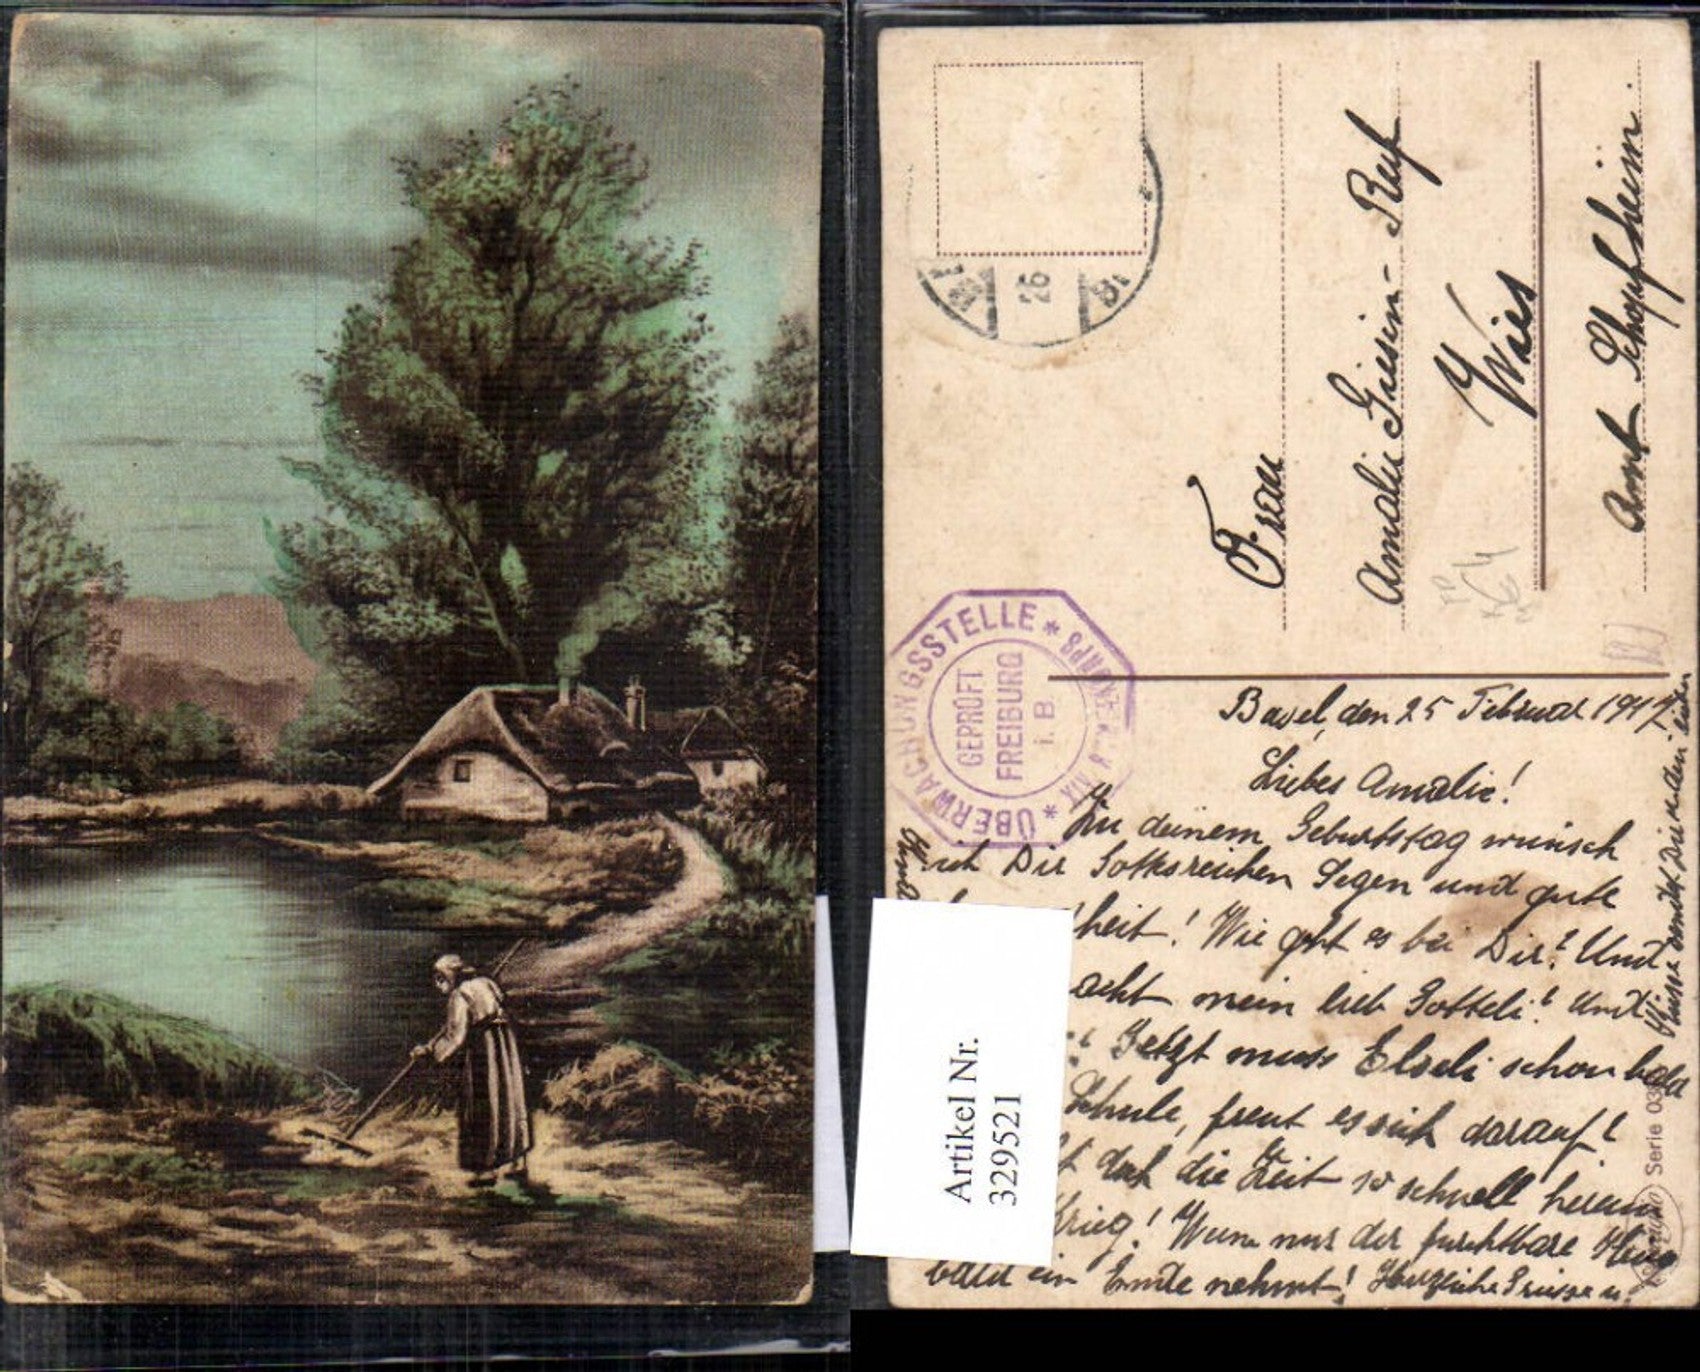 26
Frau
Amalie Giesin-Ruf
Wies
Amt Schopfheim.
ÜBERWACHUNGSSTELLE *
GEPRÜFT
FREIBURG
i. B.
Basel, den 25 Februar 1917
Liebes Amalie!
Zu deinem Geburtstag wünsch
ich Dir Gottesreichen Segen und gute
heit! Wie geht es bei Dir? Und
acht mein lieb Gotteli? Und
Jetzt muss Elseli schon bald
Schule, freut es sich darauf?
doch die Zeit so schnell herum
Krieg! Wenn nur der furchtbare Krieg
bald ein Ende nehmt! Herzliche Grüsse u.
Serie 03
Artikel Nr.
329521